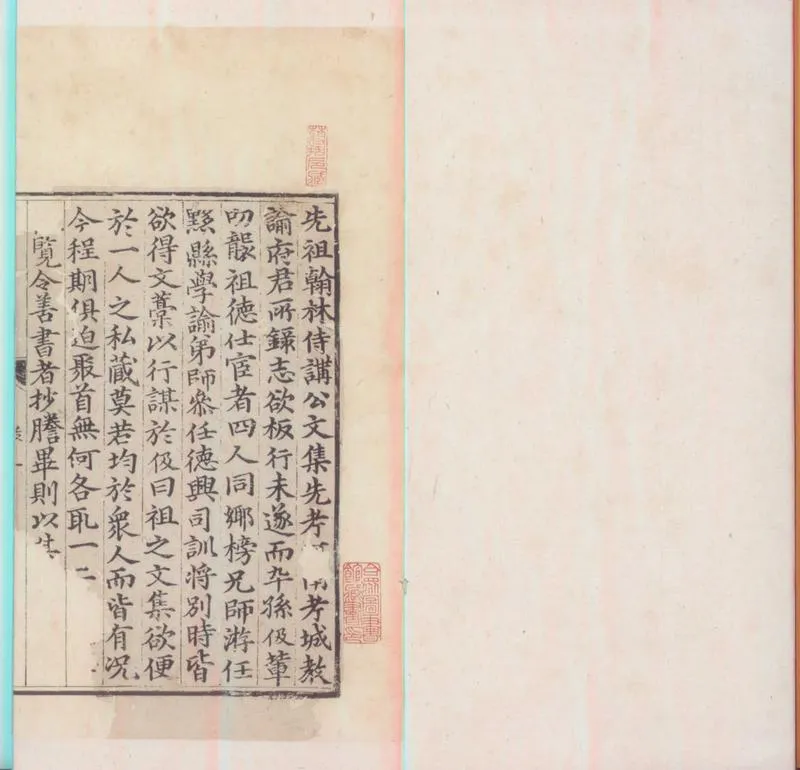 先祖翰林侍講公文集先考 用考城教
諭府君所錄志欲板行未遂而卒孫伋輩
叨襲祖德仕宦者四人同鄉榜兄師游任
黟縣學諭弟師參任德興司訓將別時皆
欲得文藁以行謀於伋曰祖之文集欲便
於一人之私藏莫若均於衆人而皆有况
今程期俱迫聚首無何各取一二
覽令善書者抄謄畢則以